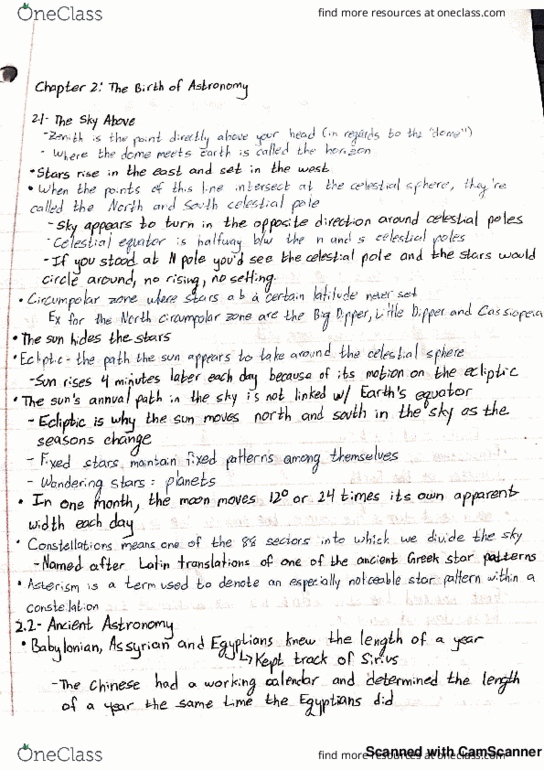 OneClass
find more resources at oneclass.com
Chapter 2: The Birth of Astronomy
2.1- The Sky Above
-Zenith is the point directly above your head (in regards to the "dome")
- Where the dome meets Earth is called the horizon
•Stars rise in the east and set in the west
•When the points of this line intersect at the celestial sphere, they're
called the North and South celestial pole
-Sky appears to turn in the opposite direction around celestial poles
-Celestial equator is halfway b/w the n and s celestial poles
-If you stood at N pole you'd see the celestial pole and the stars would
circle around, no rising, no setting.
•Circumpolar zone where stars ab a certain latitude never set
Ex for the North circumpolar zone are the Big Dipper, Little Dipper and Cassiopeia
•The sun hides the stars
•Ecliptic- the path the sun appears to take around the celestial sphere
-Sun rises 4 minutes later each day because of its motion on the ecliptic
•The sun's annual path in the sky is not linked w/ Earth's equator
-Ecliptic is why the sun moves north and south in the sky as the
seasons change
- Fixed stars maintain fixed patterns among themselves
- Wandering stars: planets
• In one month, the moon moves 12° or 24 times its own apparent
width each day
•Constellations means one of the 88 sectors into which we divide the sky
-Named after Latin translations of one of the ancient Greek star patterns
•Asterism is a term used to denote an especially noticeable star pattern within a
constellation
2.2- Ancient Astronomy
•Babylonian, Assyrian and Egyptians knew the length of a year
↳Kept track of Sirius
-The Chinese had a working calendar and determined the length
of a year the same time the Egyptians did
OneClass
find more resources at oneclass.com
Scanned with CamScanner